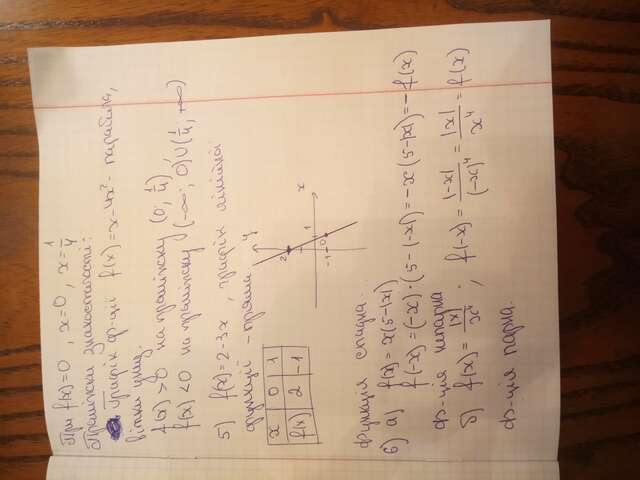 При f(x)=0, x=0, x=1/4
Проміжки знакосталості:
Графік ф-ції f(x)=x-4x²- парабола,
вітки вниз.
f(x)>0 на проміжку (0; 1/4),
f(x)<0 на проміжку (-∞; 0)∪(1/4; +∞)
5) f(x)=2-3x, графік лінійної
функції - пряма
x 0 1
f(x) 2 -1
y
2
1
0
-1
x
Функція спадна.
6) а) f(x)=x(5-|x|)
f(-x)=(-x)·(5-|-x|)=-x(5-|x|)=-f(x)
Ф-ція непарна
б) f(x)=|x|/x⁴; f(-x)=|-x|/(-x)⁴=|x|/x⁴=f(x)
Ф-ція парна.